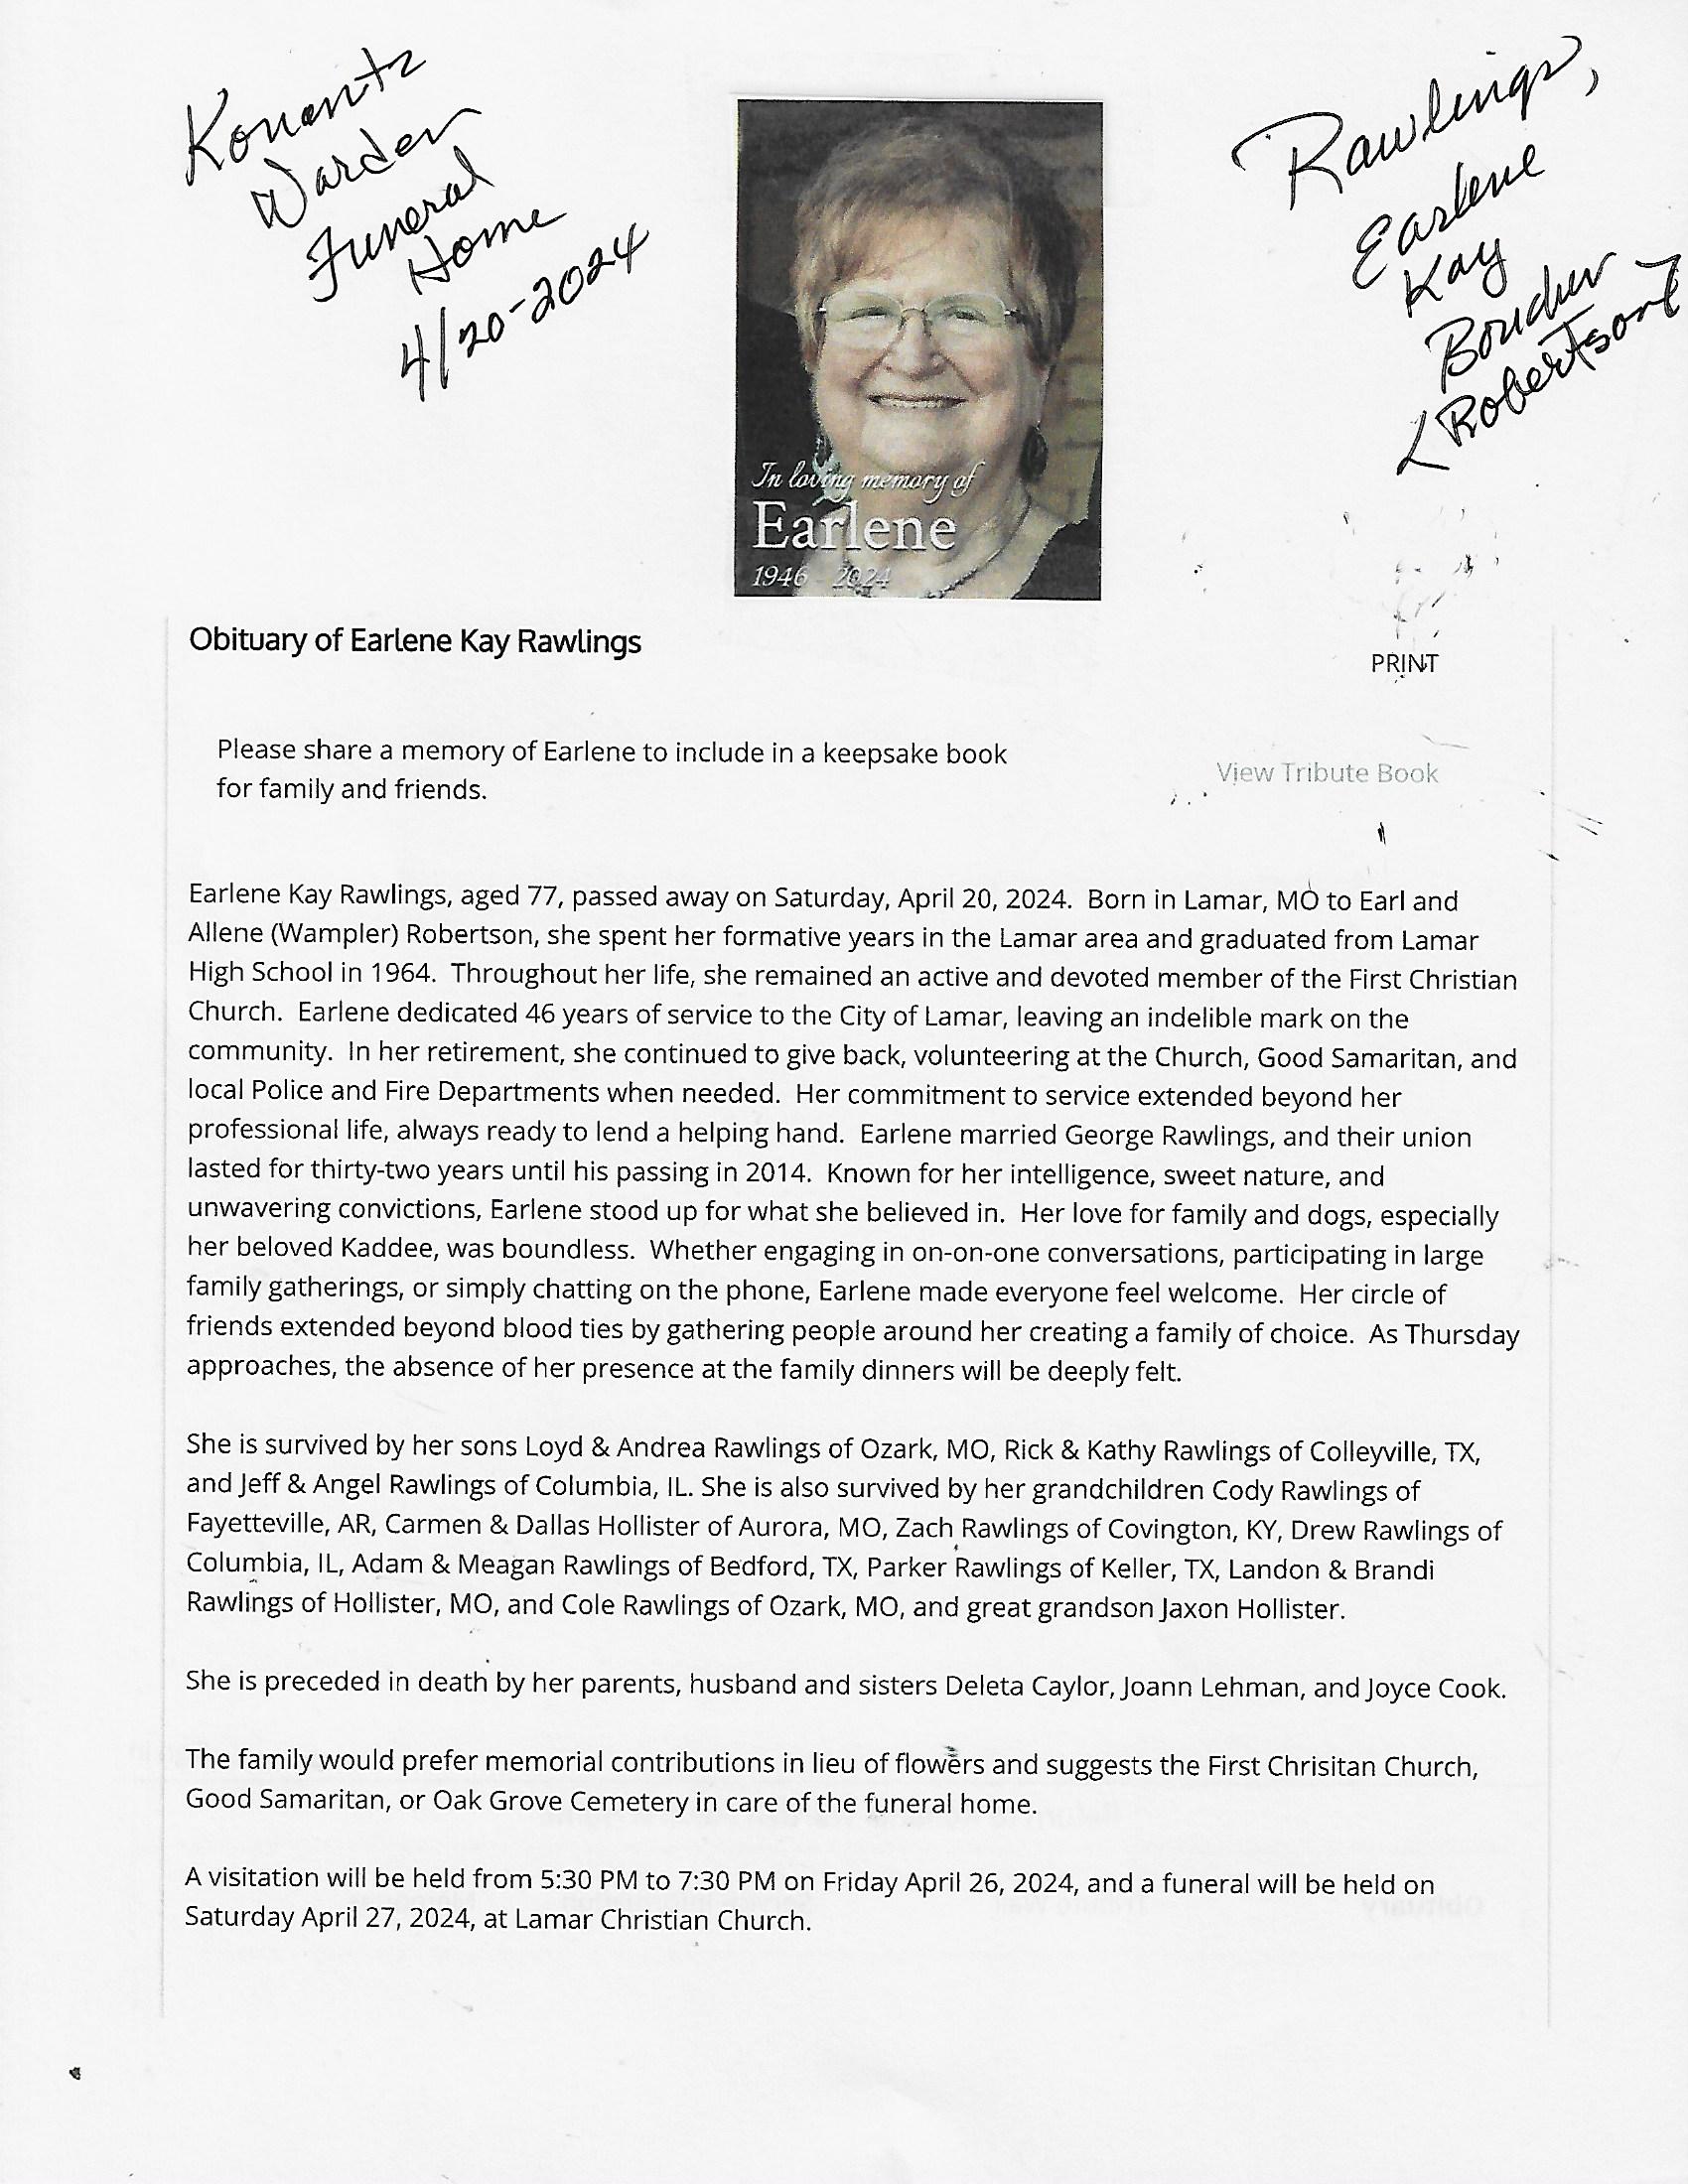 Konantz
Warden
Funeral
Home
4/20-2024
Rawlings,
Earlene
Kay
Boucher
< Robertson >
In loving memory of
Earlene
1946 - 2024
Obituary of Earlene Kay Rawlings
PRINT
Please share a memory of Earlene to include in a keepsake book
for family and friends.
View Tribute Book
Earlene Kay Rawlings, aged 77, passed away on Saturday, April 20, 2024.  Born in Lamar, MO to Earl and
Allene (Wampler) Robertson, she spent her formative years in the Lamar area and graduated from Lamar
High School in 1964.  Throughout her life, she remained an active and devoted member of the First Christian
Church.  Earlene dedicated 46 years of service to the City of Lamar, leaving an indelible mark on the
community.  In her retirement, she continued to give back, volunteering at the Church, Good Samaritan, and
local Police and Fire Departments when needed.  Her commitment to service extended beyond her
professional life, always ready to lend a helping hand.  Earlene married George Rawlings, and their union
lasted for thirty-two years until his passing in 2014.  Known for her intelligence, sweet nature, and
unwavering convictions, Earlene stood up for what she believed in.  Her love for family and dogs, especially
her beloved Kaddee, was boundless.  Whether engaging in on-on-one conversations, participating in large
family gatherings, or simply chatting on the phone, Earlene made everyone feel welcome.  Her circle of
friends extended beyond blood ties by gathering people around her creating a family of choice.  As Thursday
approaches, the absence of her presence at the family dinners will be deeply felt.
She is survived by her sons Loyd & Andrea Rawlings of Ozark, MO, Rick & Kathy Rawlings of Colleyville, TX,
and Jeff & Angel Rawlings of Columbia, IL. She is also survived by her grandchildren Cody Rawlings of
Fayetteville, AR, Carmen & Dallas Hollister of Aurora, MO, Zach Rawlings of Covington, KY, Drew Rawlings of
Columbia, IL, Adam & Meagan Rawlings of Bedford, TX, Parker Rawlings of Keller, TX, Landon & Brandi
Rawlings of Hollister, MO, and Cole Rawlings of Ozark, MO, and great grandson Jaxon Hollister.
She is preceded in death by her parents, husband and sisters Deleta Caylor, Joann Lehman, and Joyce Cook.
The family would prefer memorial contributions in lieu of flowers and suggests the First Chrisitan Church,
Good Samaritan, or Oak Grove Cemetery in care of the funeral home.
A visitation will be held from 5:30 PM to 7:30 PM on Friday April 26, 2024, and a funeral will be held on
Saturday April 27, 2024, at Lamar Christian Church.